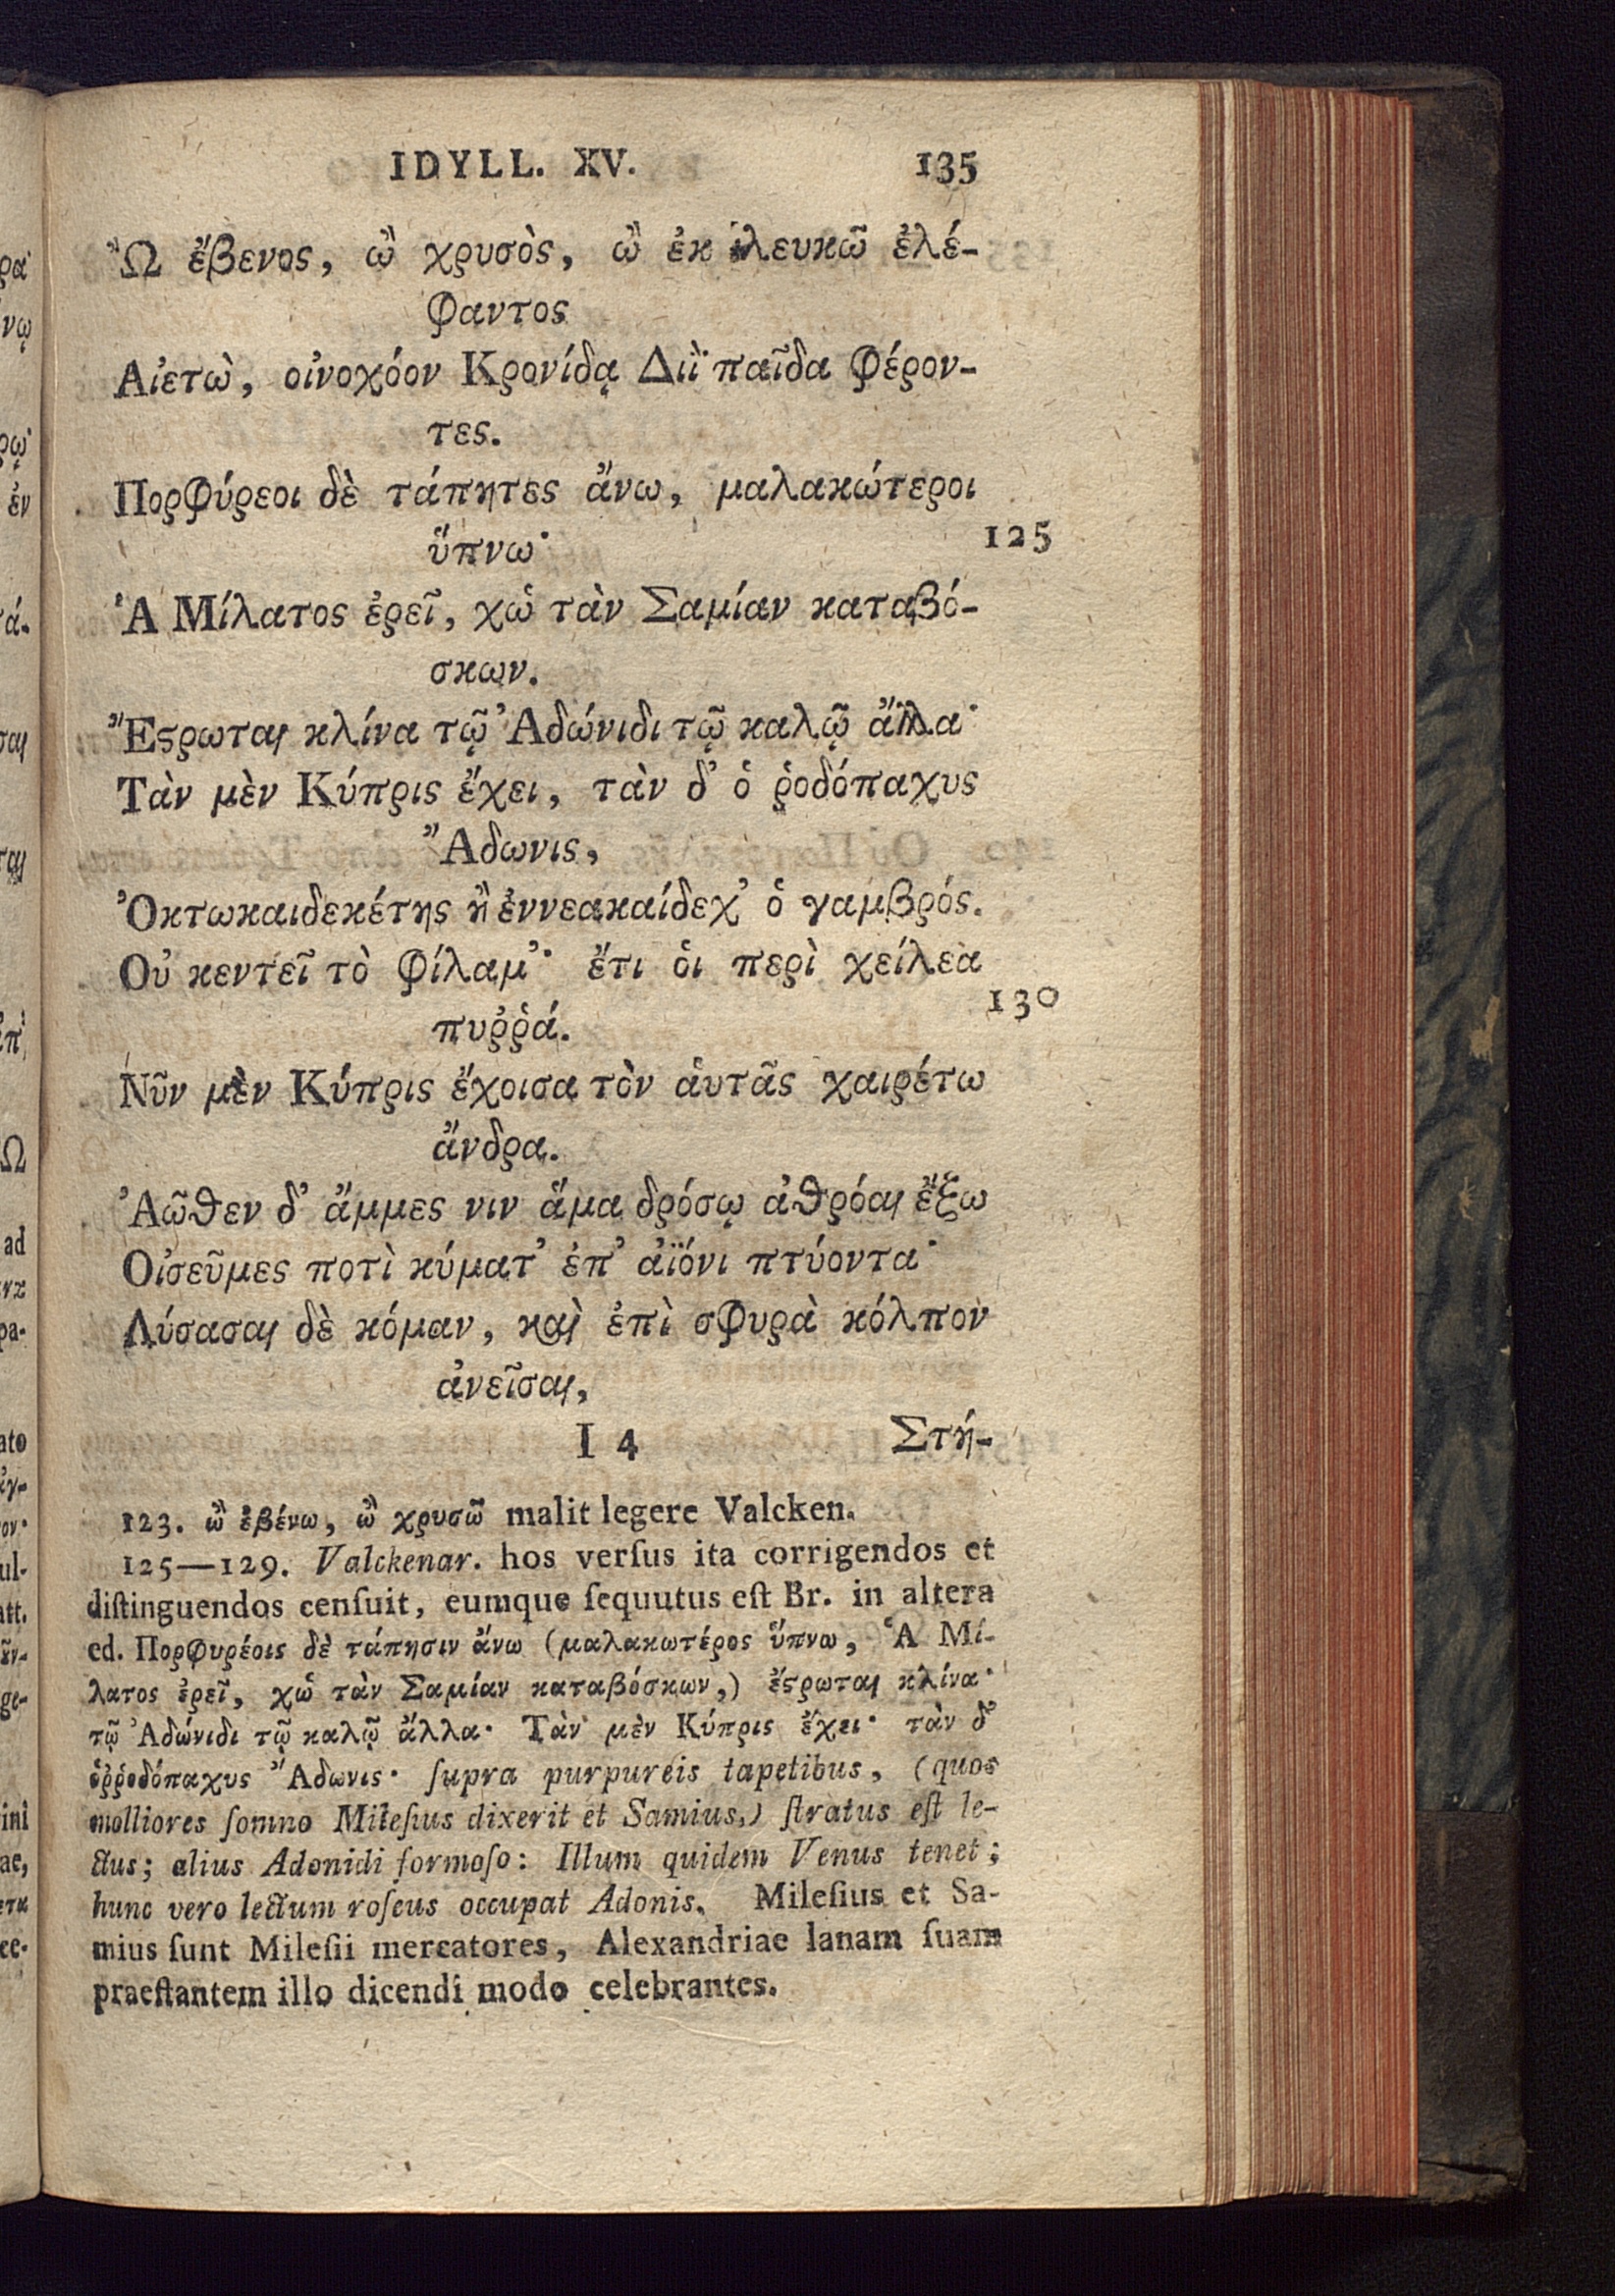 IDYLL. XV. 135
Ὢ ἔβενος, ὢ χρυσὸς, ὢ ἐκ λευκῶ ἐλέ-
φαντος
Αἰετὼ, οἰνοχόον Κρονίδᾳ Διῒ παῖδα φέρον-
τες.
Πορφύρεοι δὲ τάπητες ἄνω, μαλακώτεροι
ὕπνω· 125
Ἁ Μίλατος ἐρεῖ, χὠ τὰν Σαμίαν καταβό-
σκων.
Ἔϛρωται κλίνα τῷ Ἀδώνιδι τῷ καλῷ ἄλλα·
Τὰν μὲν Κύπρις ἔχει, τὰν δ' ὁ ῥοδόπαχυς
Ἄδωνις,
Ὀκτωκαιδεκέτης ἢ ἐννεακαίδεχ' ὁ γαμβρός.
Οὐ κεντεῖ τὸ φίλαμ'· ἔτι ὁι περὶ χείλεα
πυῤῥά. 130
Νῦν μὲν Κύπρις ἔχοισα τὸν ἁυτᾶς χαιρέτω
ἄνδρα.
Ἀῶθεν δ' ἄμμες νιν ἅμα δρόσῳ ἀθρόαι ἔξω
Οἰσεῦμες ποτὶ κύματ' ἐπ' ἀϊόνι πτύοντα·
Λύσασαι δὲ κόμαν, καὶ ἐπὶ σφυρὰ κόλπον
ἀνεῖσαι,
I 4 Στή-
123. ὢ ἐβένω, ὢ χρυσῶ malit legere Valcken.
125—129. Valckenar. hos verſus ita corrigendos et
diſtinguendos cenſuit, eumque ſequutus eſt Br. in altera
ed. Πορφυρέοις δὲ τάπησιν ἄνω (μαλακωτέρος ὕπνω, Ἁ Μί-
λατος ἐρεῖ, χὠ τὰν Σαμίαν καταβόσκων,) ἔϛρωται κλίνα·
τῷ Ἀδώνιδι τῷ καλῷ ἄλλα· Τὰν μὲν Κύπρις ἔχει· τὰν δ'
ὁῤῥοδόπαχυς Ἄδωνις· ſupra purpureis tapetibus, (quos
molliores ſomno Mileſius dixerit et Samius,) ſtratus eſt le-
ctus; alius Adonidi formoſo: Illum quidem Venus tenet;
hunc vero lectum roſeus occupat Adonis. Mileſius et Sa-
mius ſunt Mileſii mercatores, Alexandriae lanam ſuam
praeſtantem illo dicendi modo celebrantes.